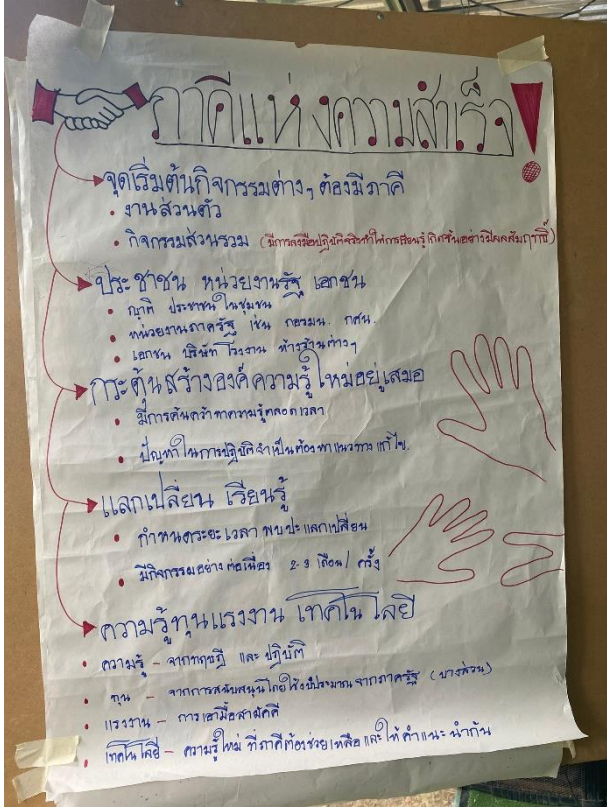 ภาคีแห่งความสำเร็จ!
จุดเริ่มต้นกิจกรรมต่างๆ ต้องมีภาคี
• งานส่วนตัว
• กิจกรรมส่วนรวม (มีการลงมือปฏิบัติจริงทำให้การเรียนรู้เกิดขึ้นอย่างมีผลสัมฤทธิ์)
ประชาชน หน่วยงานรัฐ เอกชน
• ญาติ ประชาชนในชุมชน
• หน่วยงานภาครัฐ เช่น กอรมน. กศน.
• เอกชน บริษัท โรงงาน ห้างร้านต่างๆ
กระตุ้นสร้างองค์ความรู้ใหม่อยู่เสมอ
• มีการค้นคว้าหาความรู้ตลอดเวลา
• ปัญหาในการปฏิบัติจำเป็นต้องหาแนวทางแก้ไข.
แลกเปลี่ยน เรียนรู้
• กำหนดระยะเวลา พบปะแลกเปลี่ยน
• มีกิจกรรมอย่างต่อเนื่อง 2-3 เดือน/ครั้ง
ความรู้ทุนแรงงาน เทคโนโลยี
• ความรู้ – จากทฤษฎี และ ปฏิบัติ
• ทุน – จากการสนับสนุนโดยใช้งบประมาณจากภาครัฐ (บางส่วน)
• แรงงาน – การเอามื้อสามัคคี
• เทคโนโลยี – ความรู้ใหม่ ที่ภาคีต้องช่วยเหลือและให้คำแนะนำกัน